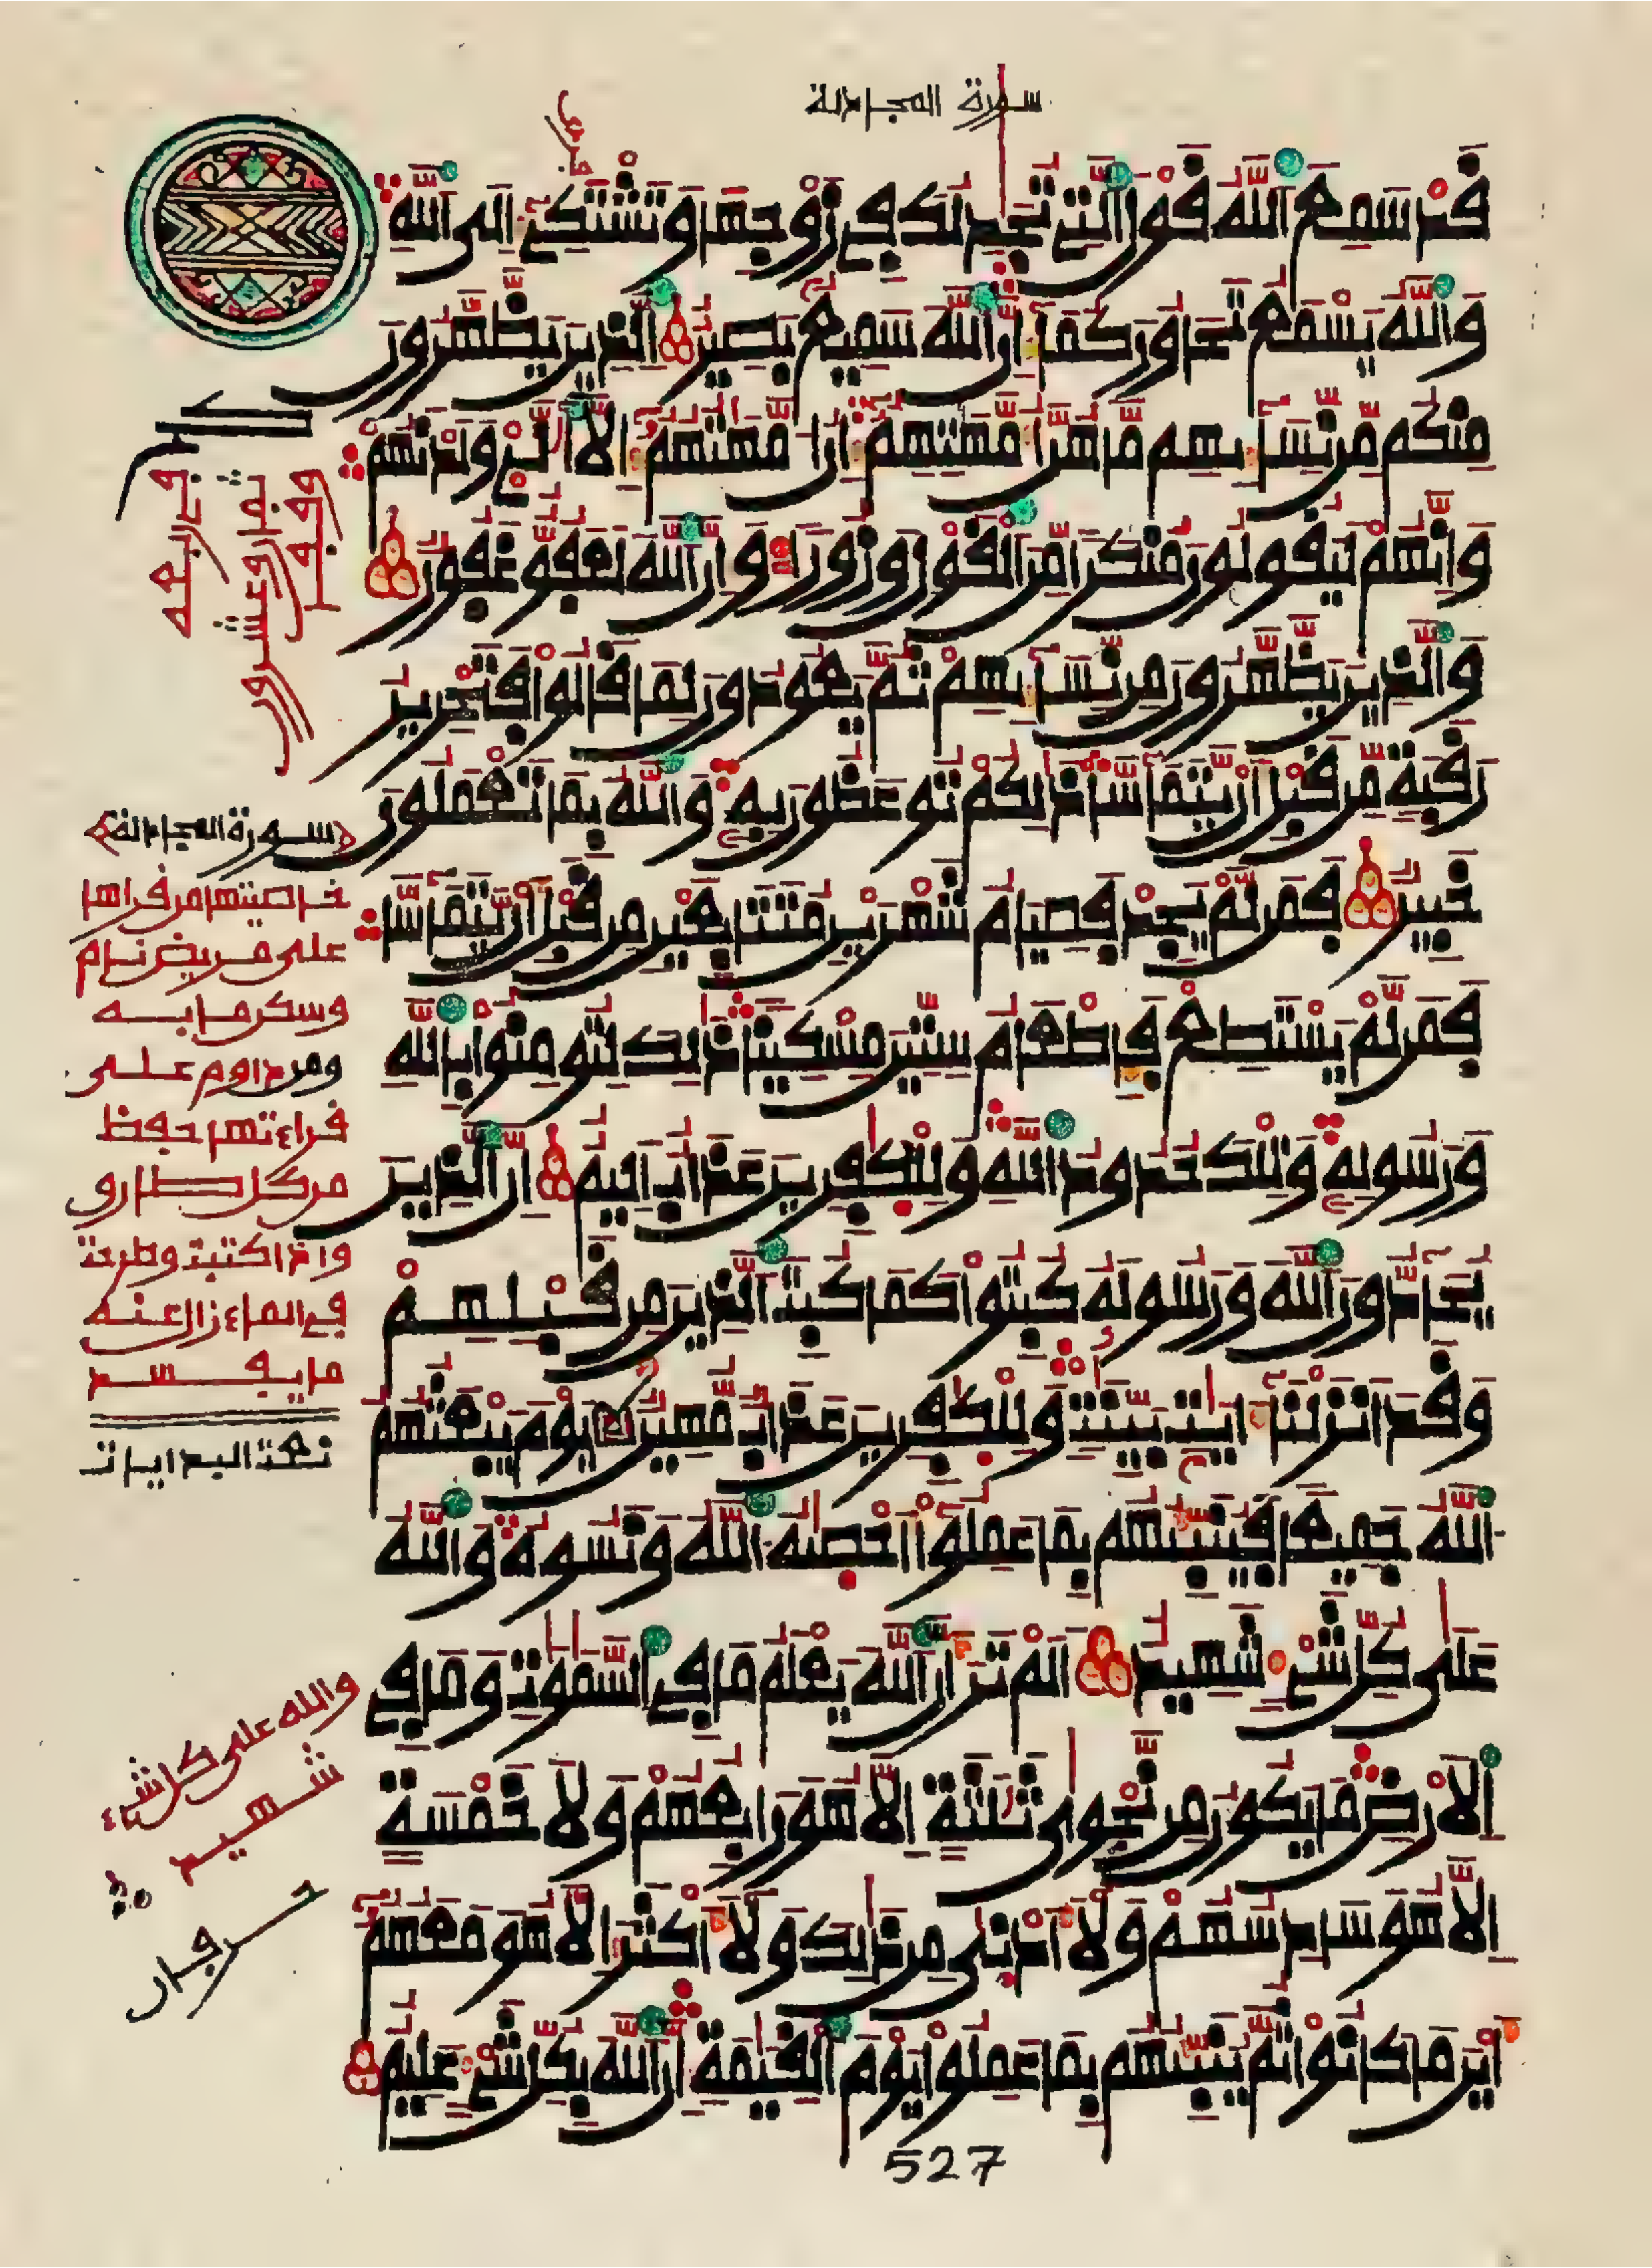 سورة المجادلة
حزب
قد سمع الله قول التي تجدلك في زوجها وتشتكي إلى الله
والله يسمع تحاوركما إن الله سميع بصير الذين يظهرون
منكم من نسائهم ما هن أمهتهم إن أمهتهم إلا الئي ولدنهم
وإنهم ليقولون منكرا من القول وزورا وإن الله لعفو غفور
والذين يظهرون من نسائهم ثم يعودون لما قالوا فتحرير
رقبة من قبل أن يتماسا ذلكم توعظون به والله بما تعملون
خبير فمن لم يجد فصيام شهرين متتابعين من قبل أن يتماسا
فمن لم يستطع فإطعام ستين مسكينا ذلك لتومنوا بالله
ورسوله وتلك حدود الله وللكفرين عذاب اليم إن الذين
يحادون الله ورسوله كبتوا كما كبت الذين من قبلهم
وقد أنزلنا ءايت بينت وللكفرين عذاب مهين يوم يبعثهم
الله جميعا فينبئهم بما عملوا أحصيه الله ونسوه والله
على كل شيء شهيد ألم تر أن الله يعلم ما في السموت وما في
الأرض ما يكون من نجوى ثلثة إلا هو رابعهم ولا خمسة
إلا هو سادسهم ولا أدنى من ذلك ولا أكثر إلا هو معهم
أين ما كانوا ثم ينبئهم بما عملوا يوم القيمة إن الله بكل شيء عليم
سورة المجادلة
خاصيتها من قراها
على مريض نام
وسكن ما به
ومن داوم على
قراءتها حفظ
من كل طارق
واذا كتبت وطرحت
في الماء زال عنه
ما يفسد
والله على كل شيء
شهيد
527